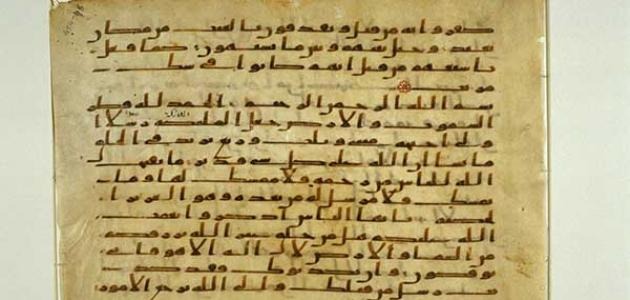 كفروا به من قبل ويقذفون بالغيب من مكان
بعيد وحيل بينهم وبين ما يشتهون كما فعل
باشيعهم من قبل انهم كانوا في شك
مريب
بسم الله الرحمن الرحيم الحمد لله فطر
السموت والارض جعل الملئكة رسلا ا
ولي اجنحة مثنى وثلث وربع يزيد في الخلق
ما يشا ان الله على كل شي قدير ما يفتح
الله للناس من رحمة فلا ممسك لها وما
يمسك فلا مرسل له من بعده وهو العزيز ا
لحكيم يايها الناس اذكروا نعمت
الله عليكم هل من خلق غير الله يرزقكم
من السما والارض لا اله الا هو فانى
توفكون وان يكذبوك فقد كذ
بت رسل من قبلك والى الله ترجع الامور